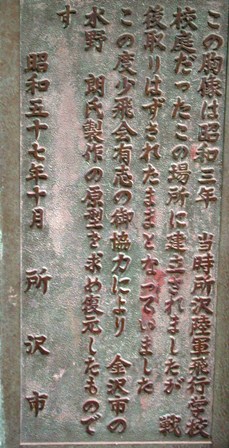 この胸像は昭和三年　当時所沢陸軍飛行学校
校庭だったこの場所に建立されましたが　戦
後取りはずされたままとなっていました
この度少飛会有志の御協力により　金沢市の
水野　朗氏製作の原型を求め復元したもので
す
昭和五十七年十月　所沢市